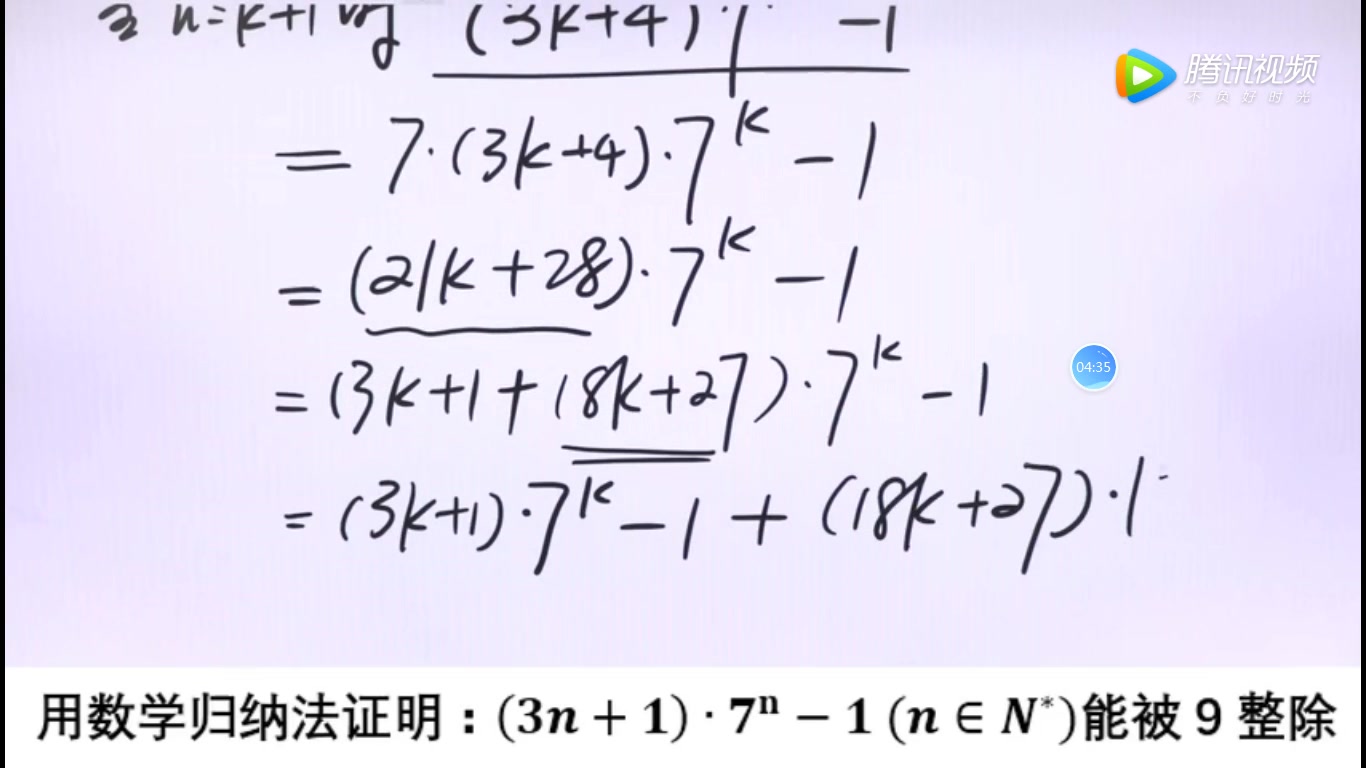 n=k+1时 (3k+4)·7 -1
腾讯视频
不负好时光
= 7·(3k+4)·7^k - 1
= (21k+28)·7^k - 1
= (3k+1+18k+27)·7^k - 1
04:35
= (3k+1)·7^k - 1 + (18k+27)·
用数学归纳法证明：(3n + 1) · 7ⁿ − 1 (n ∈ N*)能被 9 整除